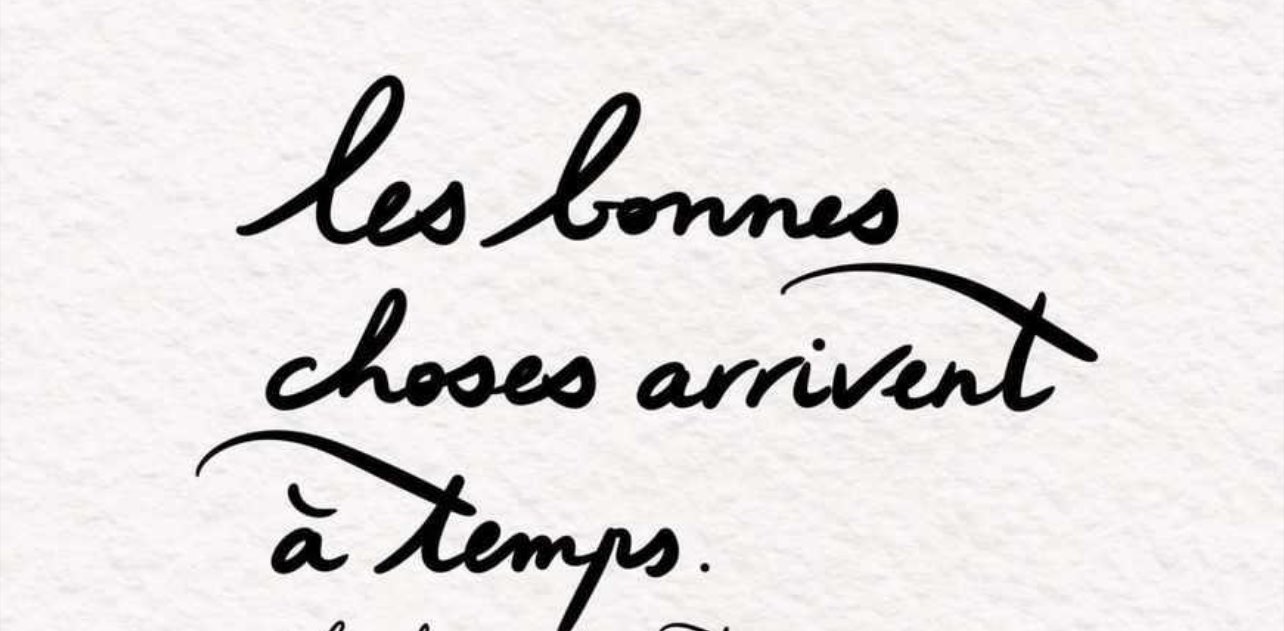 les bonnes
choses arrivent
à temps.